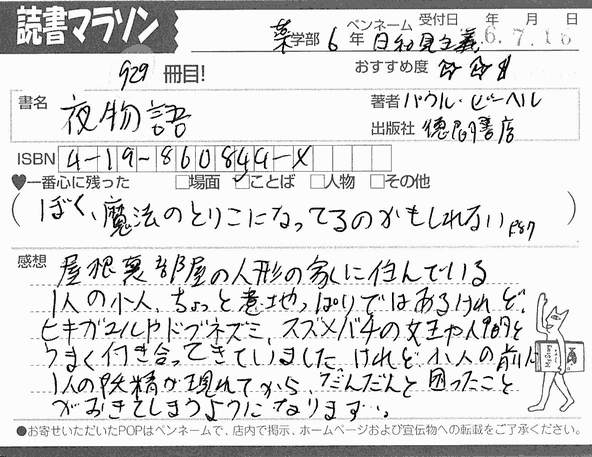 読書マラソン
929 冊目!
ペンネーム 受付日 年 月 日
薬学部 6年 日和見主義 6.7.18
おすすめ度 ☆☆☆
書名 夜物語
著者 パウル・ビーヘル
出版社 徳間書店
ISBN 4-19-860844-X
♥一番心に残った □場面 ☑ことば □人物 □その他
(ぼく、魔法のとりこになってるのかもしれない P87)
感想 屋根裏部屋の人形の家に住んでいる
1人の小人、ちょっと意地っぱりではあるけれど、
ヒキガエルやドブネズミ、スズメバチの女王や人間と
うまく付き合ってきていました。けれど小人の前に
1人の妖精が現れてから、だんだんと困ったこと
がおきてしまうようになります…。
●お寄せいただいたPOPはペンネームで、店内で掲示、ホームページおよび宣伝物への転載をご了承ください。